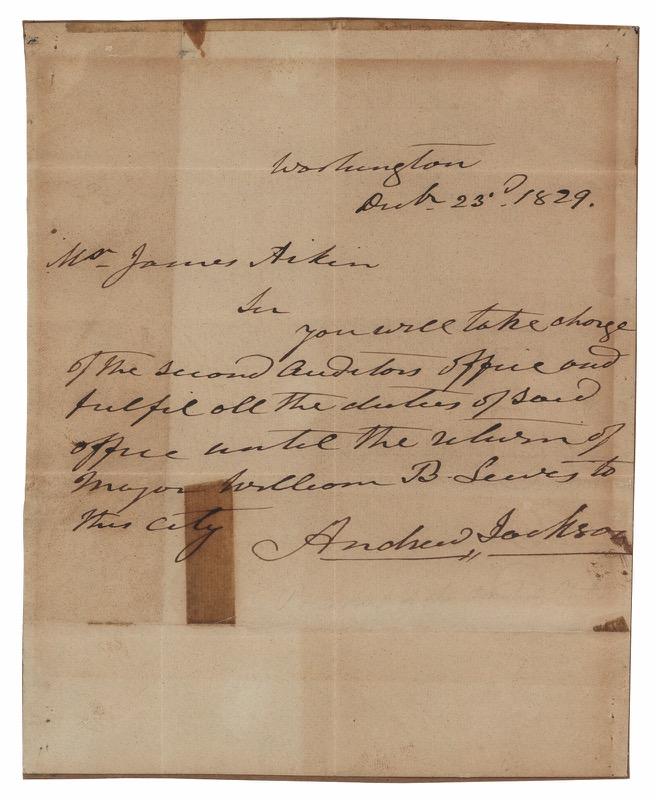 Washington
Decbr 23d. 1829.
Mr James Aikin
Sir
you will take charge
of the second Auditors office and
fulfil all the duties of said
office until the return of
Major William B. Lewis to
this city
Andrew Jackson